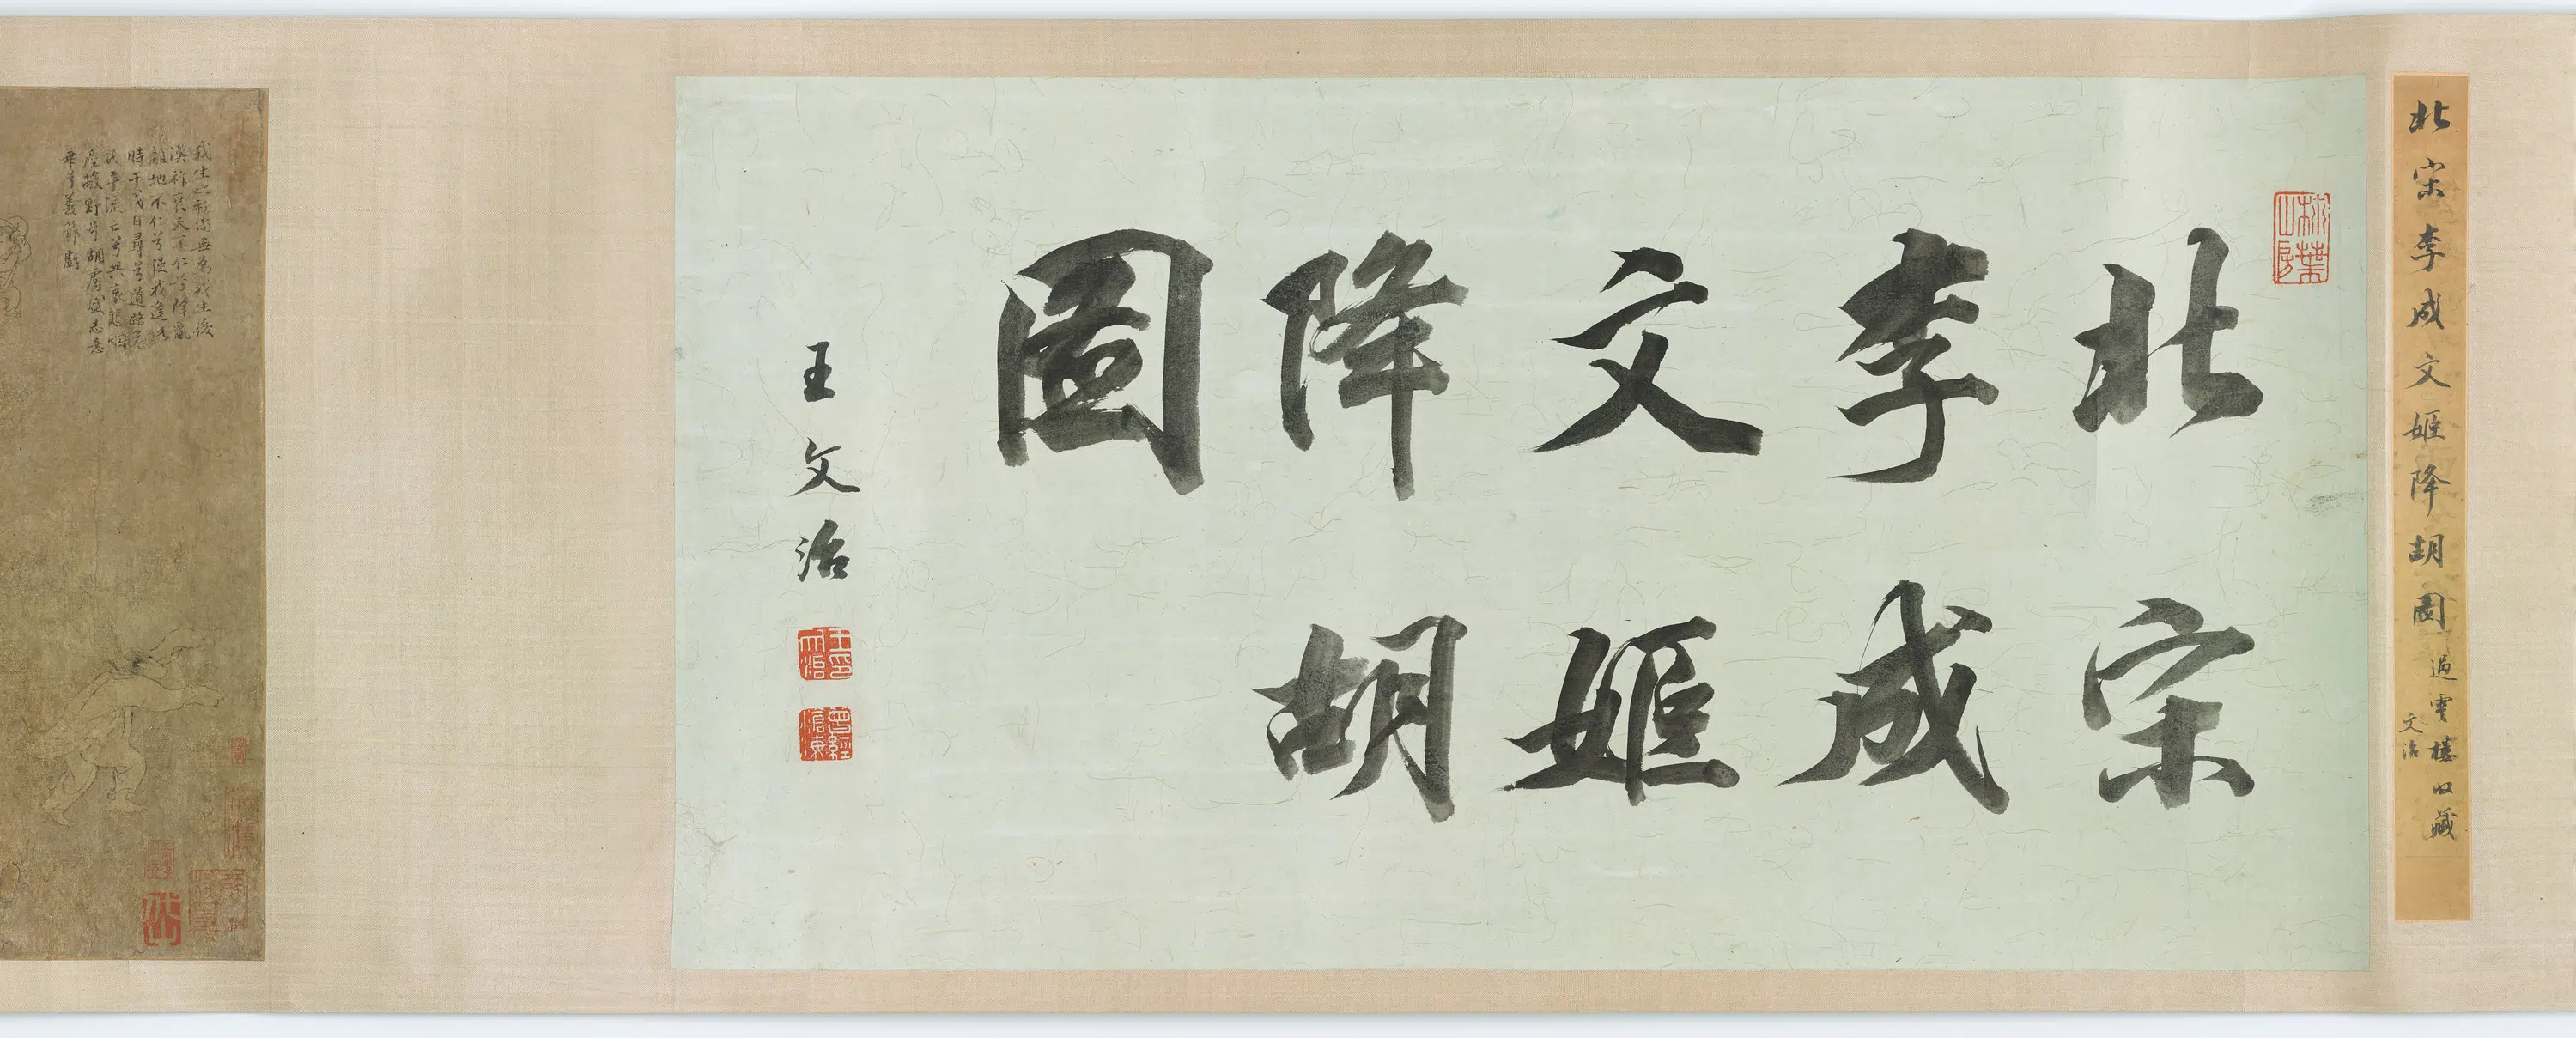 北宋李成文姬降胡圖
過雲樓旧藏
文治
北宋
李成
文姬
降胡
圖
王文治
王印
文治
曾經
滄海
我生之初尚無為我生後
漢祚衰天不仁兮降亂
離地不仁兮使我逢此
時干戈日尋兮道路危
民卒流亡兮共哀悲烟
塵蔽野兮胡虜盛志意
乖兮義節虧